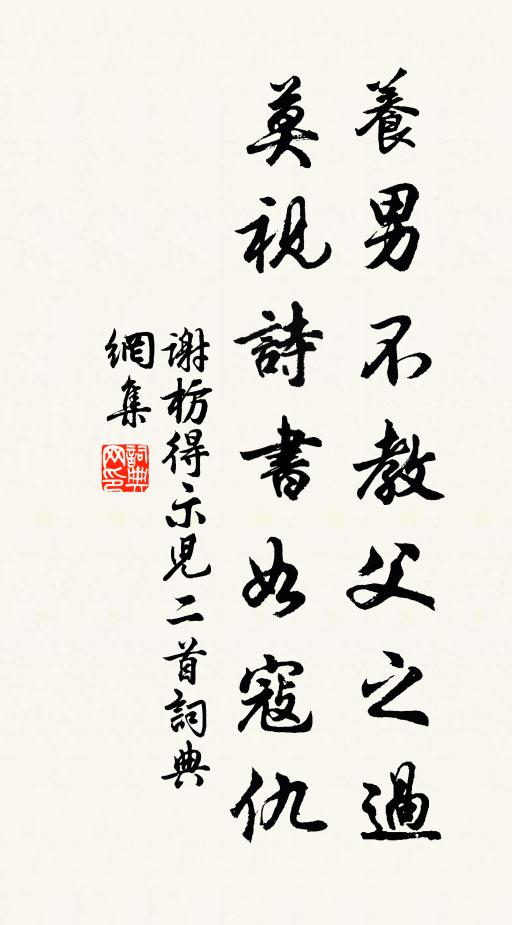 養男不教父之過
莫視詩書如寇仇
謝枋得示兒二首詞典
網集
詞典網印